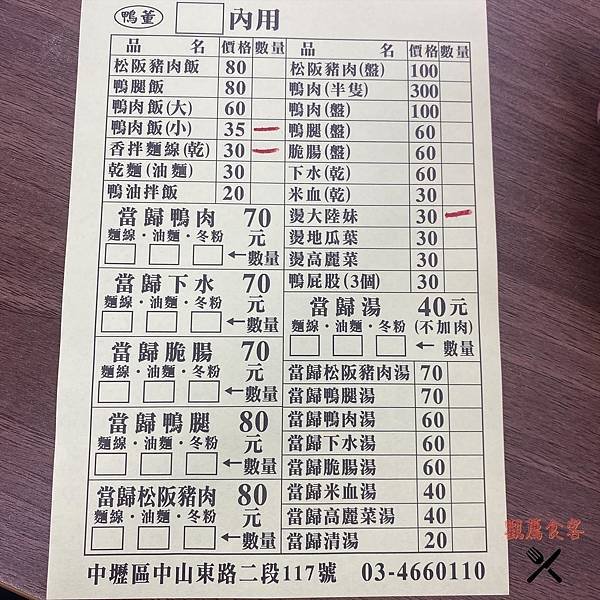 鴨董 內用
品 名 價格 數量
松阪豬肉飯 80
鴨腿飯 80
鴨肉飯(大) 60
鴨肉飯(小) 35 一
香拌麵線(乾) 30 一
乾麵(油麵) 30
鴨油拌飯 20
當歸鴨肉 70元
麵線・油麵・冬粉
←數量
當歸下水 70元
麵線・油麵・冬粉
←數量
當歸脆腸 70元
麵線・油麵・冬粉
←數量
當歸鴨腿 80元
麵線・油麵・冬粉
←數量
當歸松阪豬肉 80元
麵線・油麵・冬粉
←數量
品 名 價格 數量
松阪豬肉(盤) 100
鴨肉(半隻) 300
鴨肉(盤) 100
鴨腿(盤) 60
脆腸(盤) 60
下水(乾) 60
米血(乾) 30
燙大陸妹 30 一
燙地瓜葉 30
燙高麗菜 30
鴨屁股(3個) 30
當歸湯 40元
麵線・油麵・冬粉 (不加肉)
← 數量
當歸松阪豬肉湯 70
當歸鴨腿湯 70
當歸鴨肉湯 60
當歸下水湯 60
當歸脆腸湯 60
當歸米血湯 40
當歸高麗菜湯 40
當歸清湯 20
中壢區中山東路二段117號 03-4660110
觀鷹食客